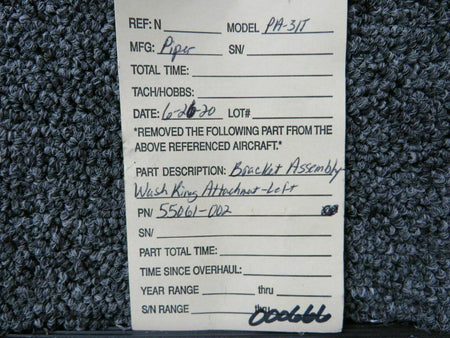 REF: N MODEL PA-31T
MFG: Piper SN/
TOTAL TIME:
TACH/HOBBS:
DATE: 6-26-20 LOT#
*REMOVED THE FOLLOWING PART FROM THE
ABOVE REFERENCED AIRCRAFT.*
PART DESCRIPTION: Bracket Assembly
Wash Ring Attachmet-Left
PN/ 55061-002
SN/
PART TOTAL TIME:
TIME SINCE OVERHAUL:
YEAR RANGE thru
S/N RANGE thru
000666